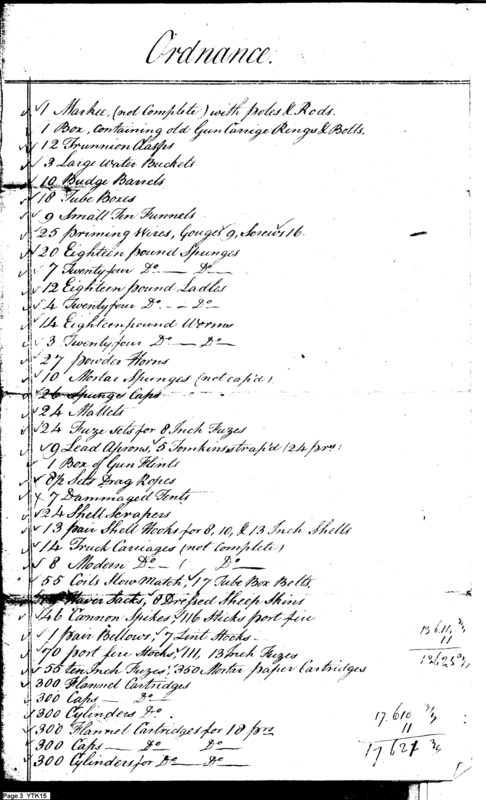 Ordnance.
1 Markee, (not Complete) with poles & Rods.
1 Box, containing old Gun Carrige Rings & Bolts.
12 Trunnion Clasps
3 Large Water Buckets
10 Budge Barrels
18 Tube Boxes
9 Small Tin Funnels
25 priming Wires, Gouges 9, Screws 16.
20 Eighteen pound Spunges
7 Twenty four Do — Do —
12 Eighteen pound Ladles
4 Twenty four Do — Do —
14 Eighteen pound Worms
3 Twenty four Do — Do —
27 powder Horns
10 Mortar Spunges (not cap'd)
26 Spunge Caps
24 Mallets
24 Fuze sets for 8 Inch Fuzes
9 Lead Aprons, 5 Tomkins strap'd (24 prs)
1 Box of Gun Flints
8½ Sets Drag Ropes
x 7 Dammaged Tents
24 Shell Scrapers
13 pair Shell Hooks for 8, 10, & 13 Inch Shells
14 Truck Carriages (not Complete)
8 Modern Do — ( Do —
55 Coils Slow Match, 17 Tube Box Belts
Haver Sacks, 8 Dressed Sheep Skins
46 Cannon Spikes, 116 Sticks port fire
1 pair Bellows, 7 Lint Stocks
70 port fire Stocks, 111, 13 Inch Fuzes
55 ten Inch Fuzes, 350 Mortar paper Cartridges
300 Flannel Cartridges
300 Caps — Do
300 Cylinders Do
300 Flannel Cartridges for 18 prs
300 Caps — Do — Do —
300 Cylinders for Do — Do —
11
17.610
11
17.621
Page 3 YTK15